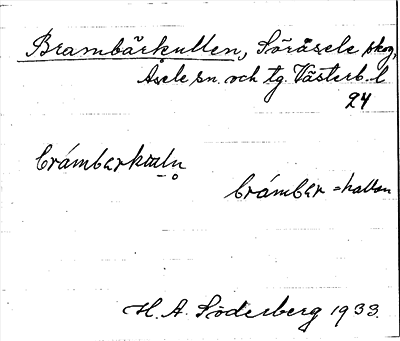 Brambärkullen, Söråsele skog,
Åsele sn. och tg. Västerb. l
24
brámbęrkɯln̥
brámbęr =hallon
H. A. Söderberg 1933.